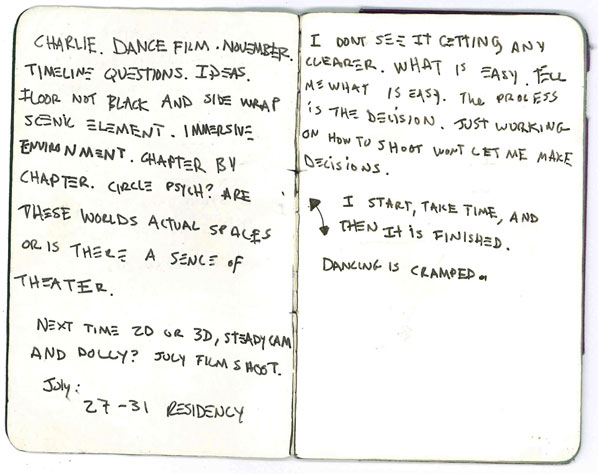 CHARLIE. DANCE FILM. NOVEMBER.
TIMELINE QUESTIONS. IDEAS.
FLOOR NOT BLACK AND SIDE WRAP
SCENIC ELEMENT. IMMERSIVE
ENVIRONMENT. CHAPTER BY
CHAPTER. CIRCLE PSYCH? ARE
THESE WORLDS ACTUAL SPACES
OR IS THERE A SENCE OF
THEATER.
NEXT TIME 2D OR 3D, STEADYCAM
AND DOLLY? JULY FILM SHOOT.
July:
27-31 RESIDENCY
I DONT SEE IT GETTING ANY
CLEARER. WHAT IS EASY. TELL
ME WHAT IS EASY. The PROCESS
IS THE DECISION. JUST WORKING
ON HOW TO SHOOT WONT LET ME MAKE
DECISIONS.
I START, TAKE TIME, AND
THEN IT IS FINISHED.
DANCING IS CRAMPED.